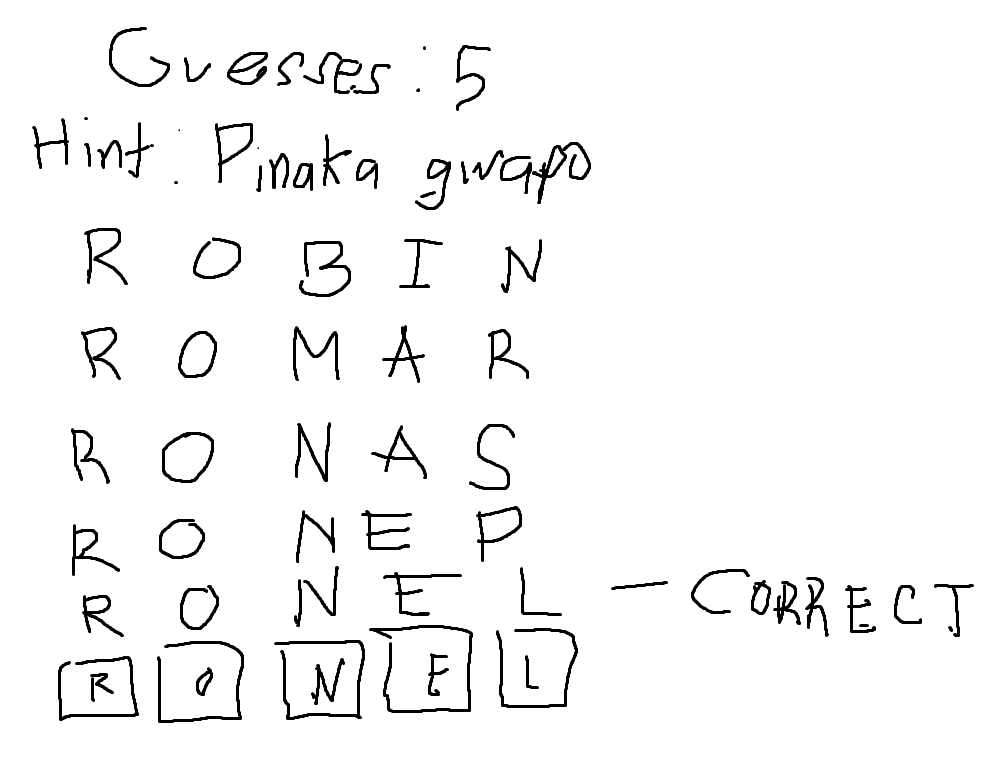 Guesses: 5
Hint: Pinaka gwapo
R O B I N
R O M A R
R O N A S
R O N E P
R O N E L - CORRECT
R O N E L